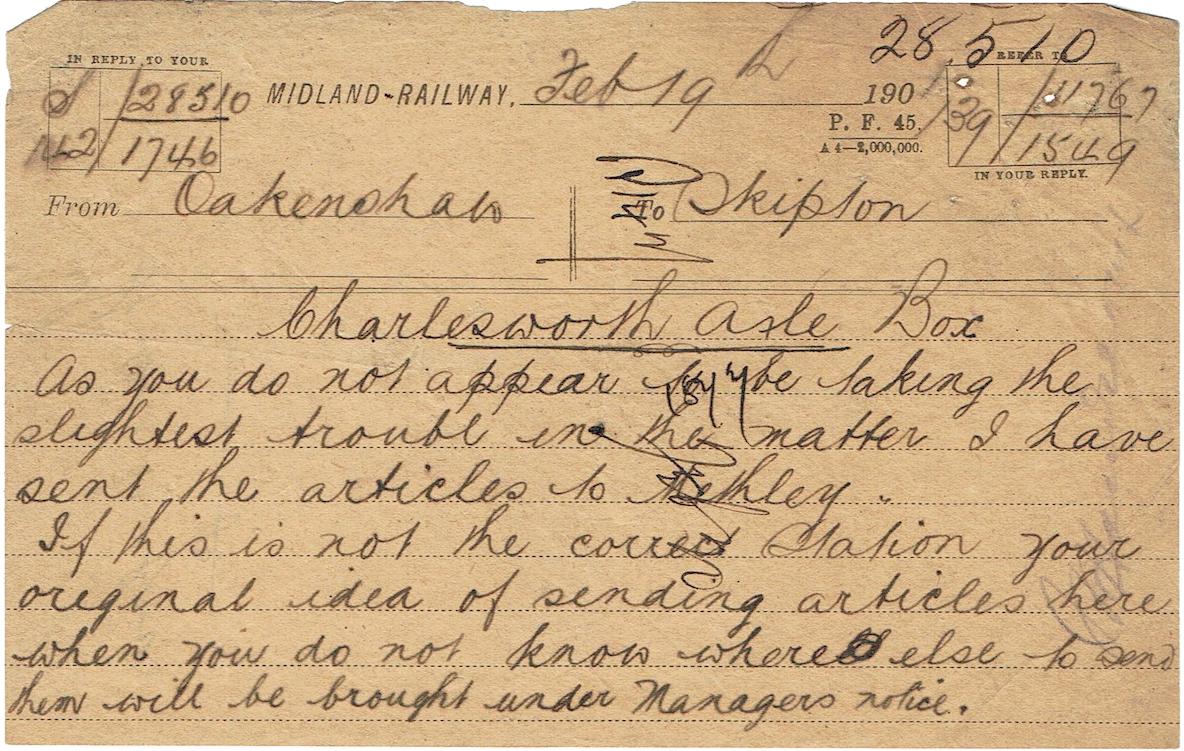 28510
IN REPLY TO YOUR
REFER TO
28510
MIDLAND-RAILWAY,
Feb 19
190
39
11767
142
1746
P. F. 45.
A 4—2,000,000.
1549
IN YOUR REPLY.
From Oakenshaw
To Skipton
Charlesworth Axle Box
As you do not appear to be taking the
slightest trouble in the matter I have
sent the articles to Methley.
If this is not the correct Station your
original idea of sending articles here
when you do not know where else to send
them will be brought under Managers notice.